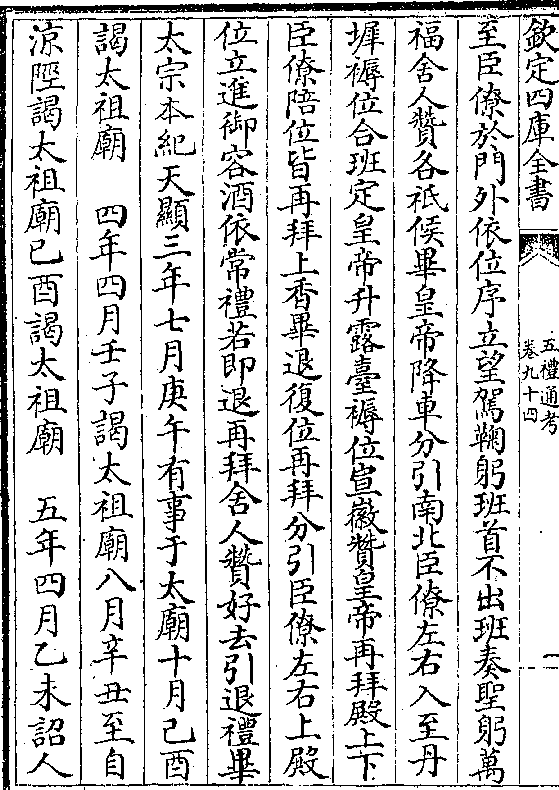 欽定四庫全書
五禮通考
卷九十四
至臣僚於門外依位序立望駕鞠躬班首不出班奏聖躬萬
福舍人贊各祗候畢皇帝降車分引南北臣僚左右入至丹
墀褥位合班定皇帝升露臺褥位宣徽贊皇帝再拜殿上下
臣僚陪位皆再拜上香畢退復位再拜分引臣僚左右上殿
位立進御容酒依常禮若即退再拜舍人贊好去引退禮畢
太宗本紀天顯三年七月庚午有事于太廟十月己酉
謁太祖廟　四年四月壬子謁太祖廟八月辛丑至自
涼陘謁太祖廟己酉謁太祖廟　五年四月乙未詔人